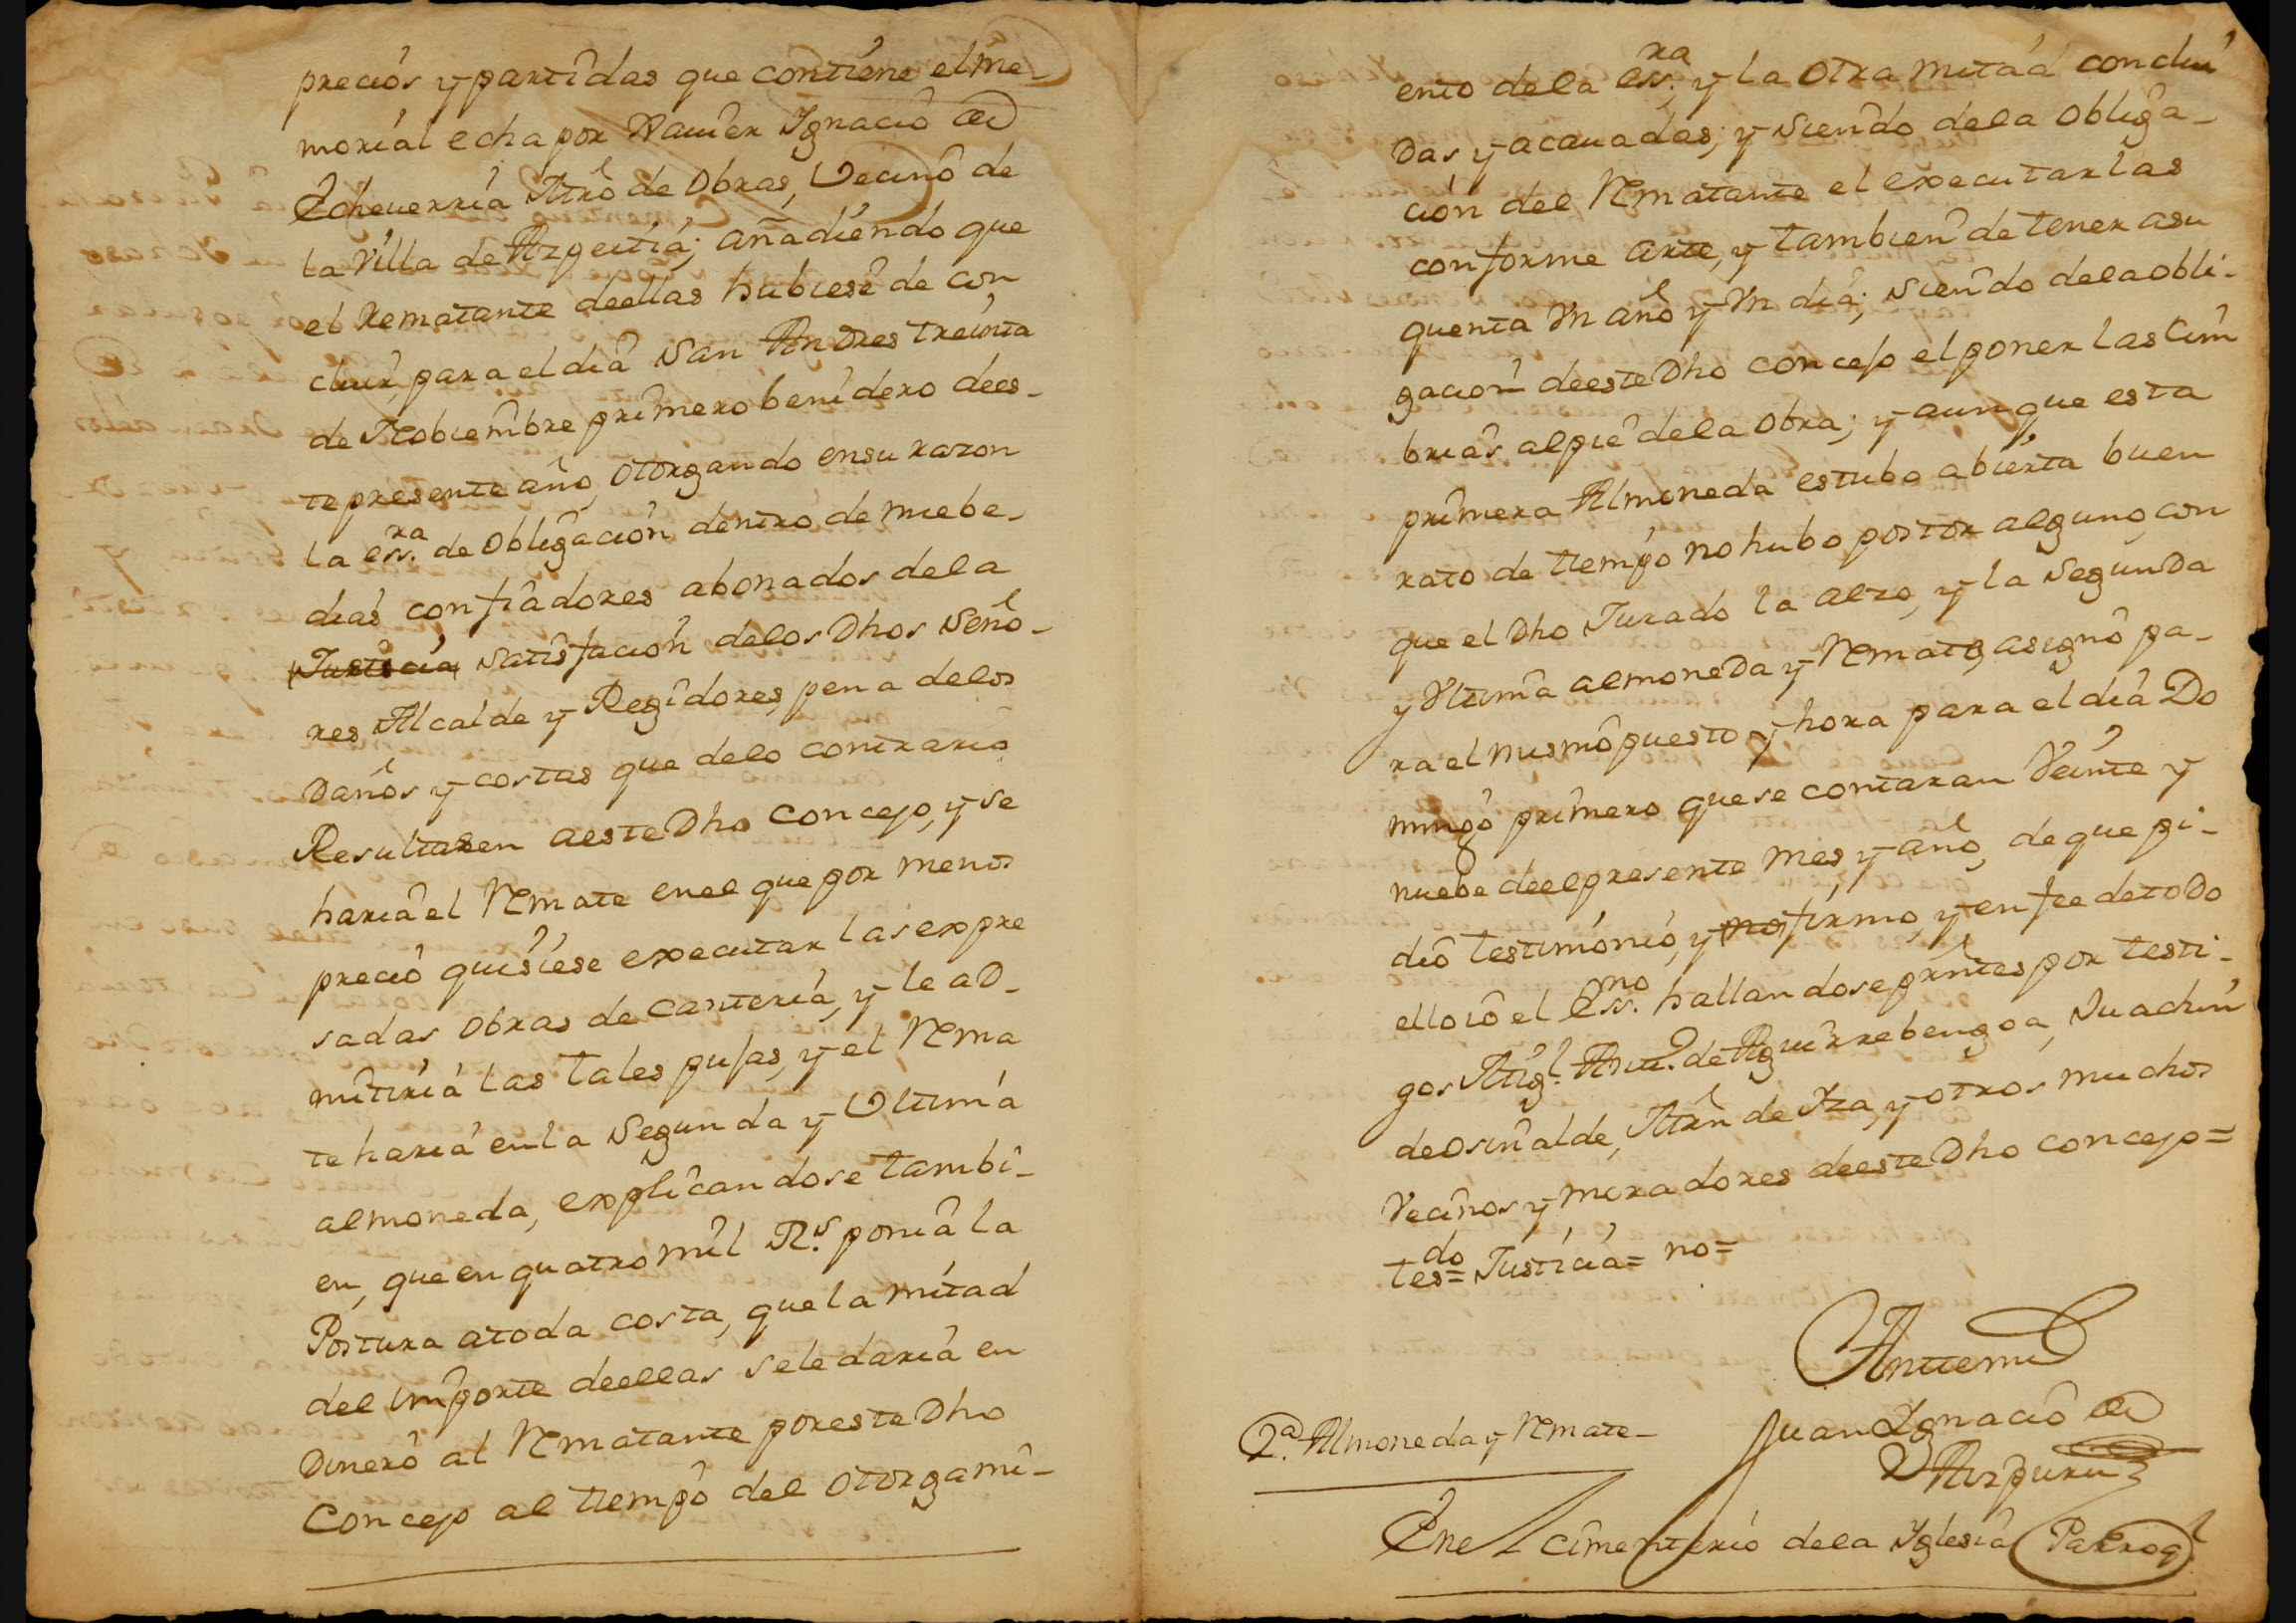 precios y partidas que contiene el me-
morial echa por Xauier Ygnacio de
Echeuerria Mro de obras, Vecino de
la Villa de Azpeitia; añadiendo que
el Rematante deellas hubiese de con
cluir, para el dia San Andres treinta
de Nobiembre primero benidero dees-
te presente año, otorgando ensu razon
la ess.ra de obligacion dentro de nuebe
dias con fiadores abonados dela
Justicia satisfacion delos Dhos Seño-
res Alcalde y Regidores, pena delos
Daños y costas que delo contrario
Resultasen aeste Dho Concejo, y se
haria el Remate enel que por menos
precio quisiese executar las expre
sadas obras de canteria, y le ad-
mitiria las tales pujas, y el Rema
te haria en la Segunda y Ultima
almoneda, explicandose tambi-
en, que en quatro mil R.s ponia la
Postura atoda costa, que la mitad
del importe deellas sele daria en
Dinero al Rematante poreste Dho
Concejo al tiempo del otorgami-
ento dela ess.ra y la otra mitad conclui
das y acauadas; y siendo dela obliga-
cion del Rematante el executarlas
conforme arte, y tambien de tener asu
quenta Vn año y Vn dia; siendo dela obli-
gacion deeste Dho concejo el poner las Cim
brias alpie dela obra; y aunque esta
primera Almoneda estubo abierta buen
rato de tiempo no hubo postor alguno, con
que el Dho Jurado la alzo, y la Segunda
y Vltima almoneda y Remate, asignò pa-
ra el mismo puesto y hora para el dia Do
mingo primero que se contaran Veinte y
nuebe deel presente mes, y año, de que pi-
dio testimonio, y no firmo, y en fee de todo
ello io el Ess.no hallandose prntes por testi-
gos Mig.l Ant.o de Aguirrebengoa, Juachin
de osinalde, Mrn de Iza, y otros muchos
Vecinos y moradores deeste Dho concejo=
tesdo= Justicia= no=
Antemi
Juan Ygnacio de
Aizpuru
2.a Almoneda y Remate-
Enel cimenterio dela Yglesia Parroq.l